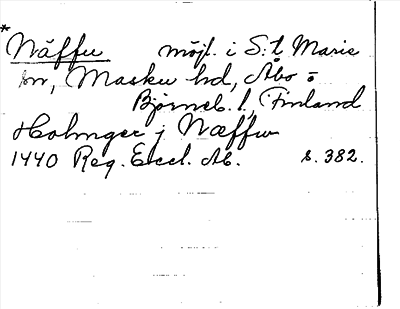 * Näffu möjl. i S:t Marie
sn, Masku hd, Åbo o
Björneb. l, Finland
Holmger j Næffu
1440 Reg. Eccl. Ab. s. 382.